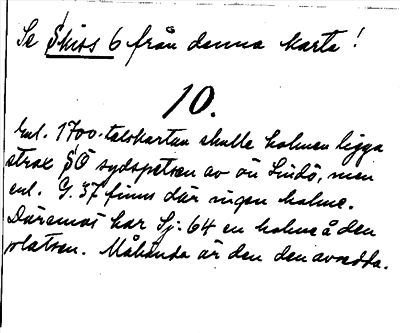 Se Skiss 6 från denna karta!
10.
Enl. 1700-talskartan skulle holmen ligga
strax SÖ sydspetsen av ön Lindö, men
enl. G. 37 finns där ingen holme.
Däremot har Sj: 64 en holme å den
platsen. Måhända är den den avsedda.